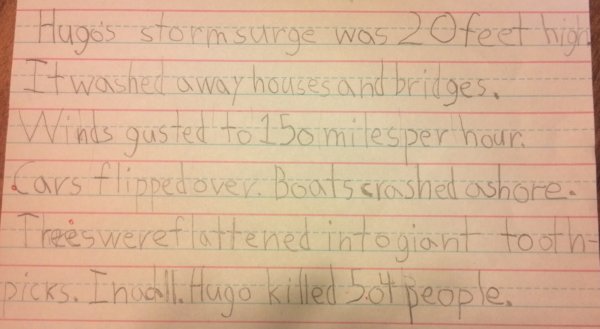 Hugo's storm surge was 20 feet high
It washed away houses and bridges.
Winds gusted to 150 miles per hour.
Cars flipped over. Boats crashed ashore.
Trees were flattened into giant tooth-
picks. In all. Hugo killed 504 people.